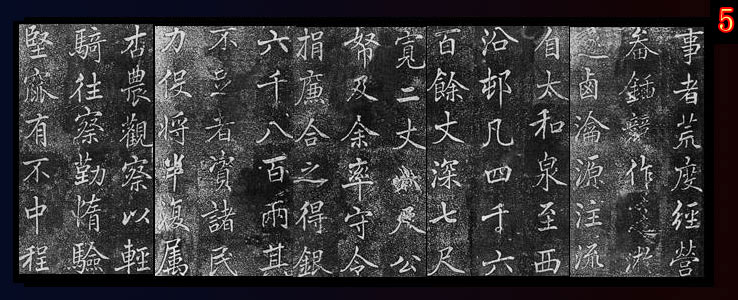 事者荒度經營
畚鍤競作
鹵淪源注流
自太和泉至西
沿邨凡四千六
百餘丈深七尺
寬二丈尺公
帑及余率守令
捐廉合之得銀
六千八百兩其
不足者資諸民
力役將半復属
杏農觀察以輕
騎往察勤惰驗
堅窳有不中程
5